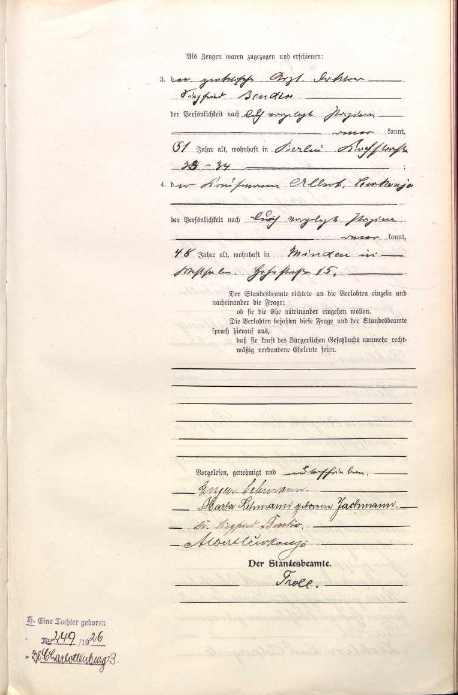 Als Zeugen waren zugezogen und erschienen:
3. der praktische Arzt Doktor
Siegfried Bender
der Persönlichkeit nach durch vorgelegte Papiere
kannt,
51 Jahre alt, wohnhaft in Berlin
33-34 ;
4. der Kaufmann Albert Lewkonja
der Persönlichkeit nach durch vorgelegte Papiere
kannt,
48 Jahre alt, wohnhaft in Minden in
Westfalen, 15.
Der Standesbeamte richtete an die Verlobten einzeln und
nacheinander die Frage:
ob sie die Ehe miteinander eingehen wollen.
Die Verlobten bejahten diese Frage und der Standesbeamte
sprach hierauf aus,
daß sie kraft des Bürgerlichen Gesetzbuchs nunmehr recht-
mäßig verbundene Eheleute seien.
Vorgelesen, genehmigt und unterschrieben.
Eugen Lehmann.
Marta Lehmann geborene Jachmann.
Dr. Siegfried Bender.
Albert Lewkonja
Der Standesbeamte.
Troll.
Eine Tochter geboren
No 249 /1926
Charlottenburg 3.